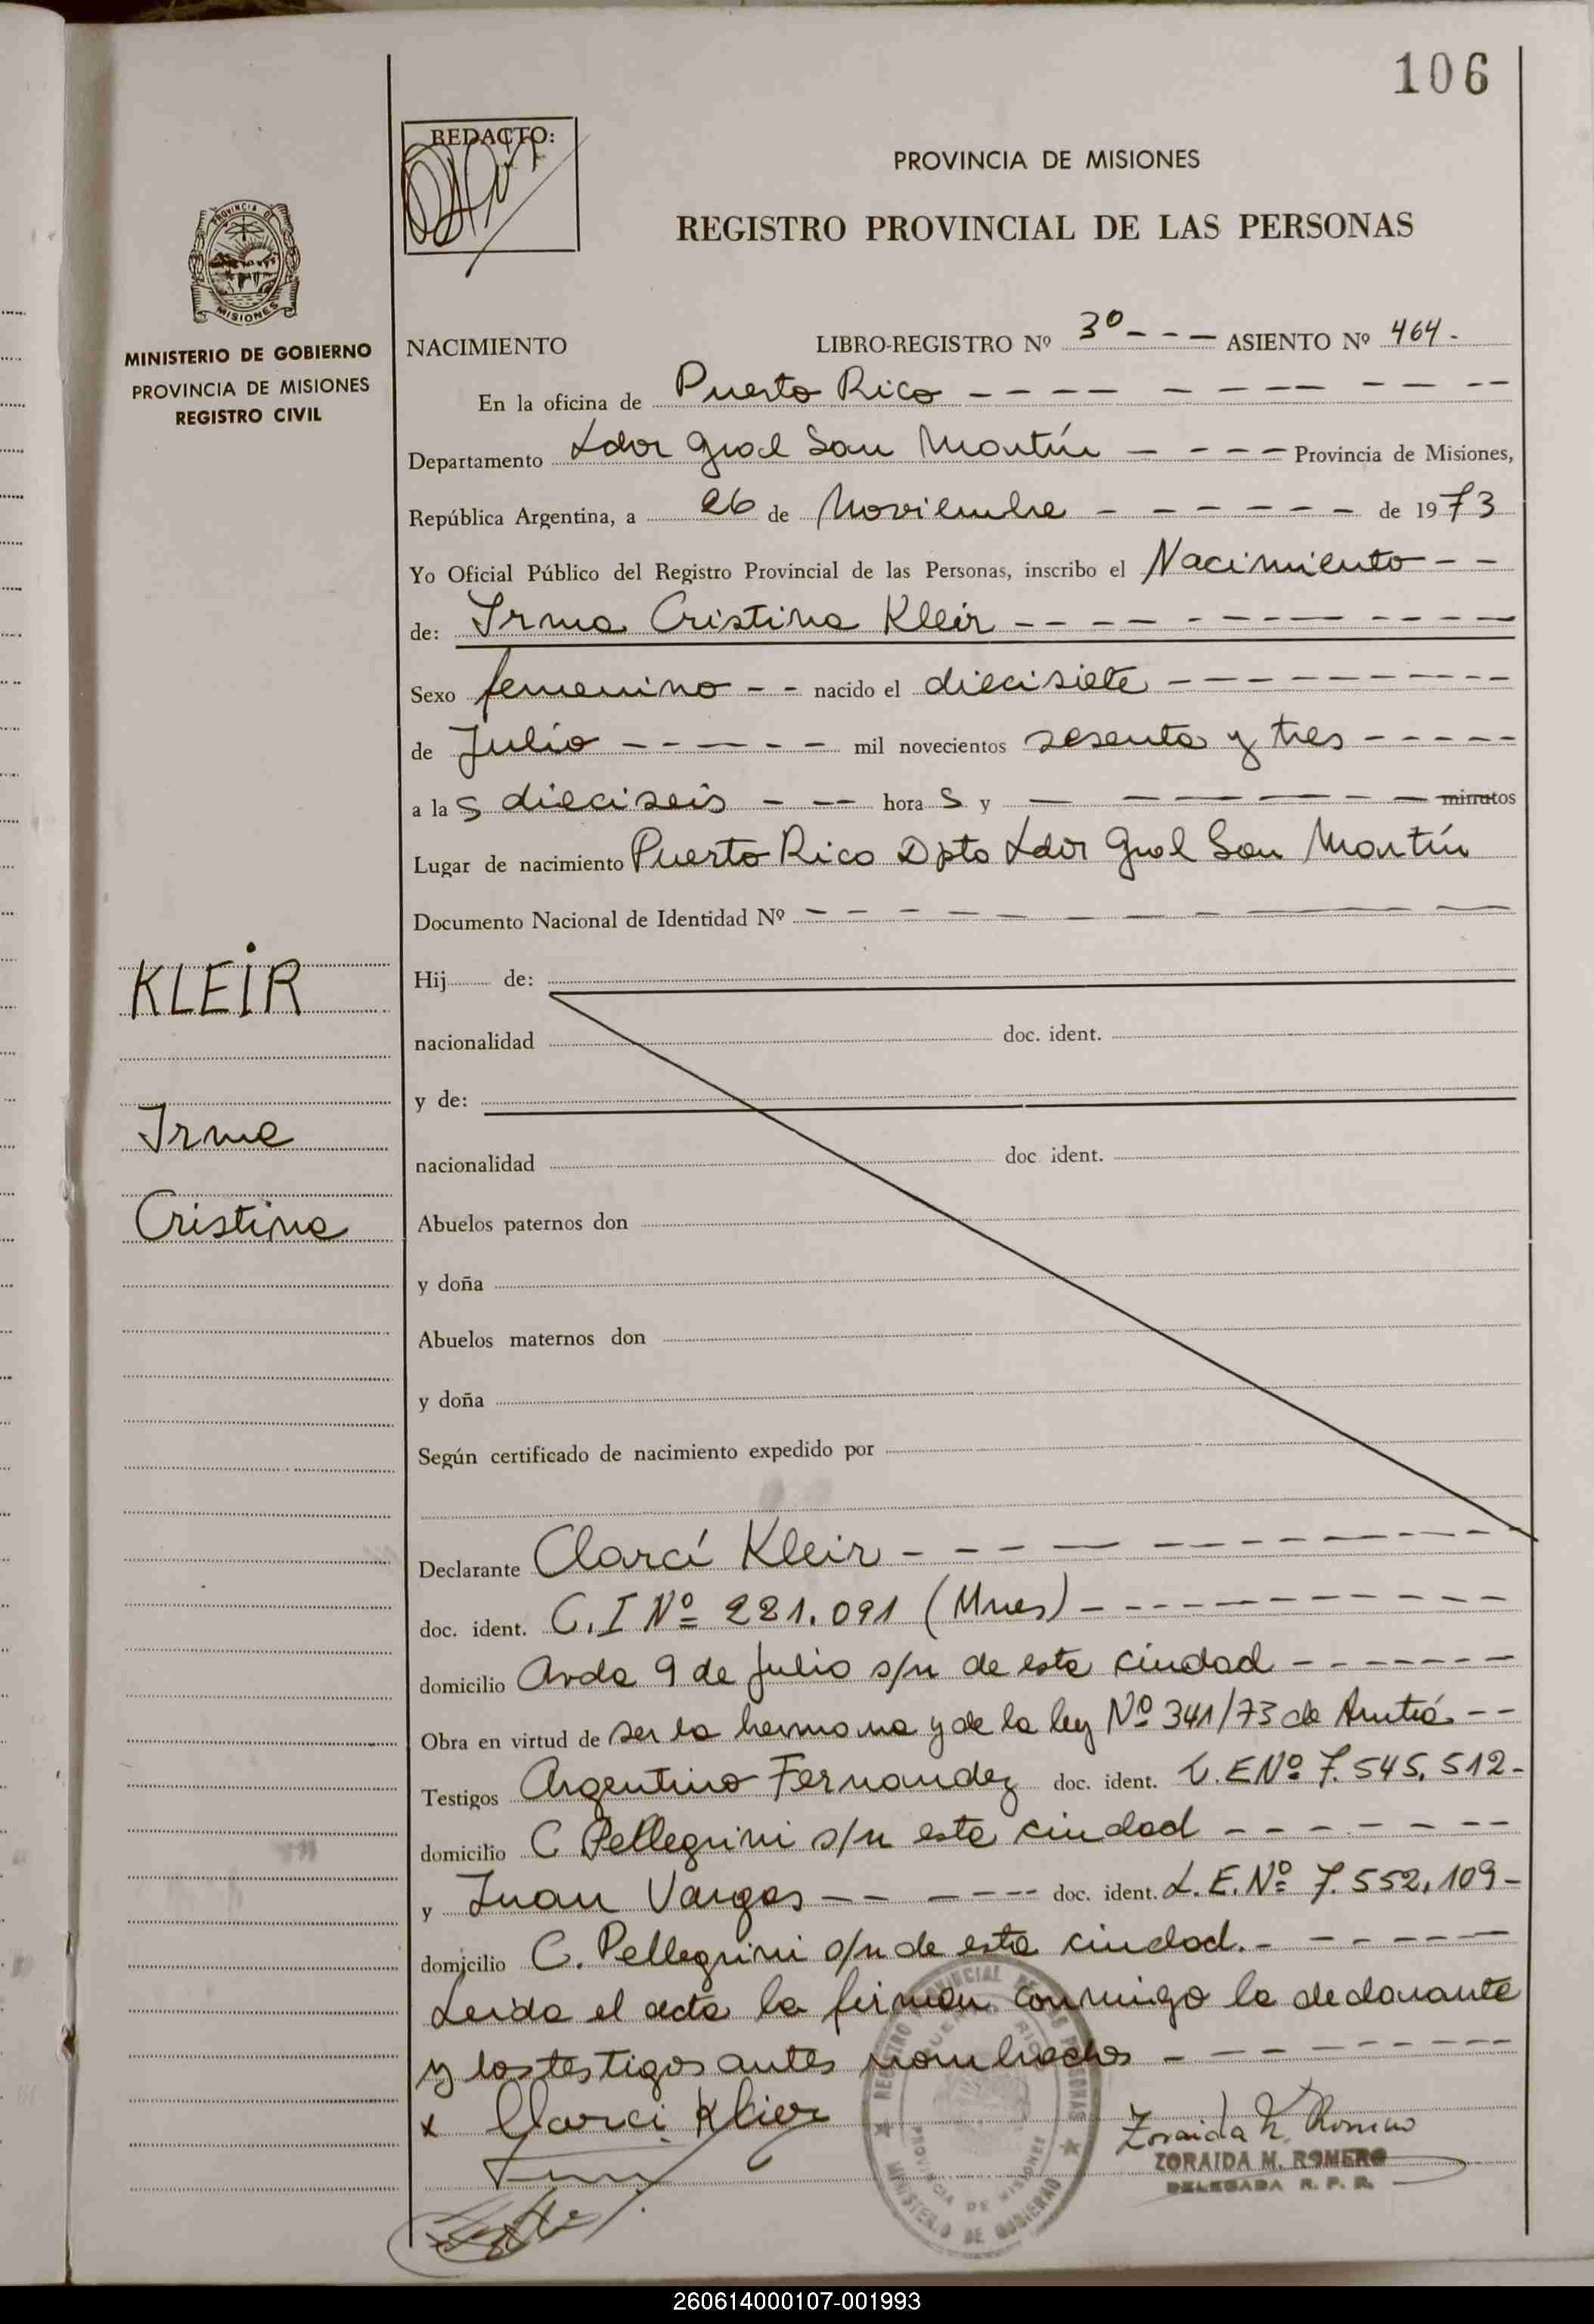 106
REDACTO:
PROVINCIA DE MISIONES
REGISTRO PROVINCIAL DE LAS PERSONAS
PROVINCIA DE
MISIONES
MINISTERIO DE GOBIERNO
PROVINCIA DE MISIONES
REGISTRO CIVIL
NACIMIENTO LIBRO-REGISTRO Nº 3º - - - ASIENTO Nº 464.-
En la oficina de Puerto Rico - - - - - - - - - - - -
Departamento Ldor Gral San Martín - - - - Provincia de Misiones,
República Argentina, a 26 de Noviembre - - - - - - de 1973
Yo Oficial Público del Registro Provincial de las Personas, inscribo el Nacimiento - -
de: Irma Cristina Kleir - - - - - - - - - - - -
Sexo femenino - - nacido el diecisiete - - - - - - - - - -
de Julio - - - - - - mil novecientos sesenta y tres - - - - -
a las dieciseis - - - horas y - - - - - - minutos
Lugar de nacimiento Puerto Rico Dpto Ldor Gral San Martín
Documento Nacional de Identidad Nº - - - - - - - - - -
KLEIR
Irma
Cristina
Hij de:
nacionalidad doc. ident.
y de:
nacionalidad doc. ident.
Abuelos paternos don
y doña
Abuelos maternos don
y doña
Según certificado de nacimiento expedido por
Declarante Clarcí Kleir - - - - - - - - - - - -
doc. ident. C.I Nº 221.091 (Mnes) - - - - - - - - - - -
domicilio Avda 9 de Julio s/n de esta ciudad - - - - - - -
Obra en virtud de ser la hermana y de la ley Nº 341/73 de Amtiá - -
Testigos Argentino Fernandez doc. ident. L.E Nº 7.545.512-
domicilio C Pellegrini s/n esta ciudad - - - - - - -
y Juan Vargas - - - - - - doc. ident. L.E. Nº 7.552.109-
domicilio C. Pellegrini s/n de esta ciudad. - - - - - - -
Leida el acta la firman conmigo la declarante
y los testigos antes nombrados - - - - - - - - -
x Clarci Klier
Zoraida M. Romero
ZORAIDA M. ROMERO
DELEGADA R. P. P.
REGISTRO PROVINCIAL DE LAS PERSONAS
PUERTO RICO
PROVINCIA DE MISIONES
MINISTERIO DE GOBIERNO
260614000107-001993